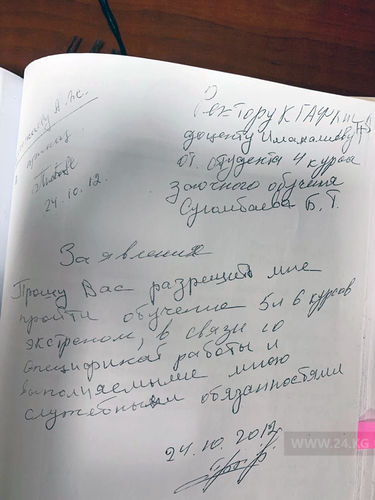 Ректору КГАФКиС
доценту Имамалиеву
от студента 4 курса
заочного обучения
Сугомбаева Б. Т.
24.10.12.
Заявление
Прошу Вас разрешить мне
пройти обучение 5и 6 курсов
экстреном, в связи со
спецификой работы и
выполняемыми мною
служебными обязанностями
24.10.2012
WWW.24.KG